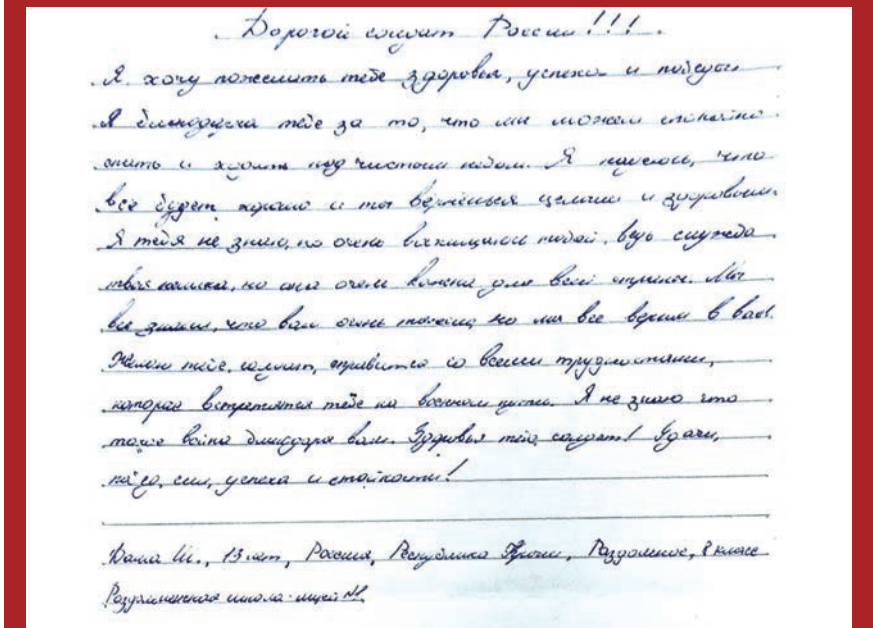 Дорогой солдат России!!!
Я хочу пожелать тебе здоровья, успеха и победы.
Я благодарна тебе за то, что мы можем спокойно
спать и ходить под чистым небом. Я надеюсь, что
все будет хорошо и ты вернёшься целым и здоровым.
Я тебя не знаю, но очень восхищаюсь тобой, ведь служба
твоя нелегка, но она очень важна для всей страны. Мы
все знаем, что вам очень тяжело, но мы все верим в вас!
Желаю тебе, солдат, справится со всеми трудностями,
которая встретятся тебе на военном пути. Я не знаю что
такое война благодаря вам. Здоровья тебе, солдат! Удачи,
сил, успеха и стойкости!
Даша Ш., 13 лет, Россия, Республика Крым, Раздольное, 8 класс
Раздольненская школа-лицей №1